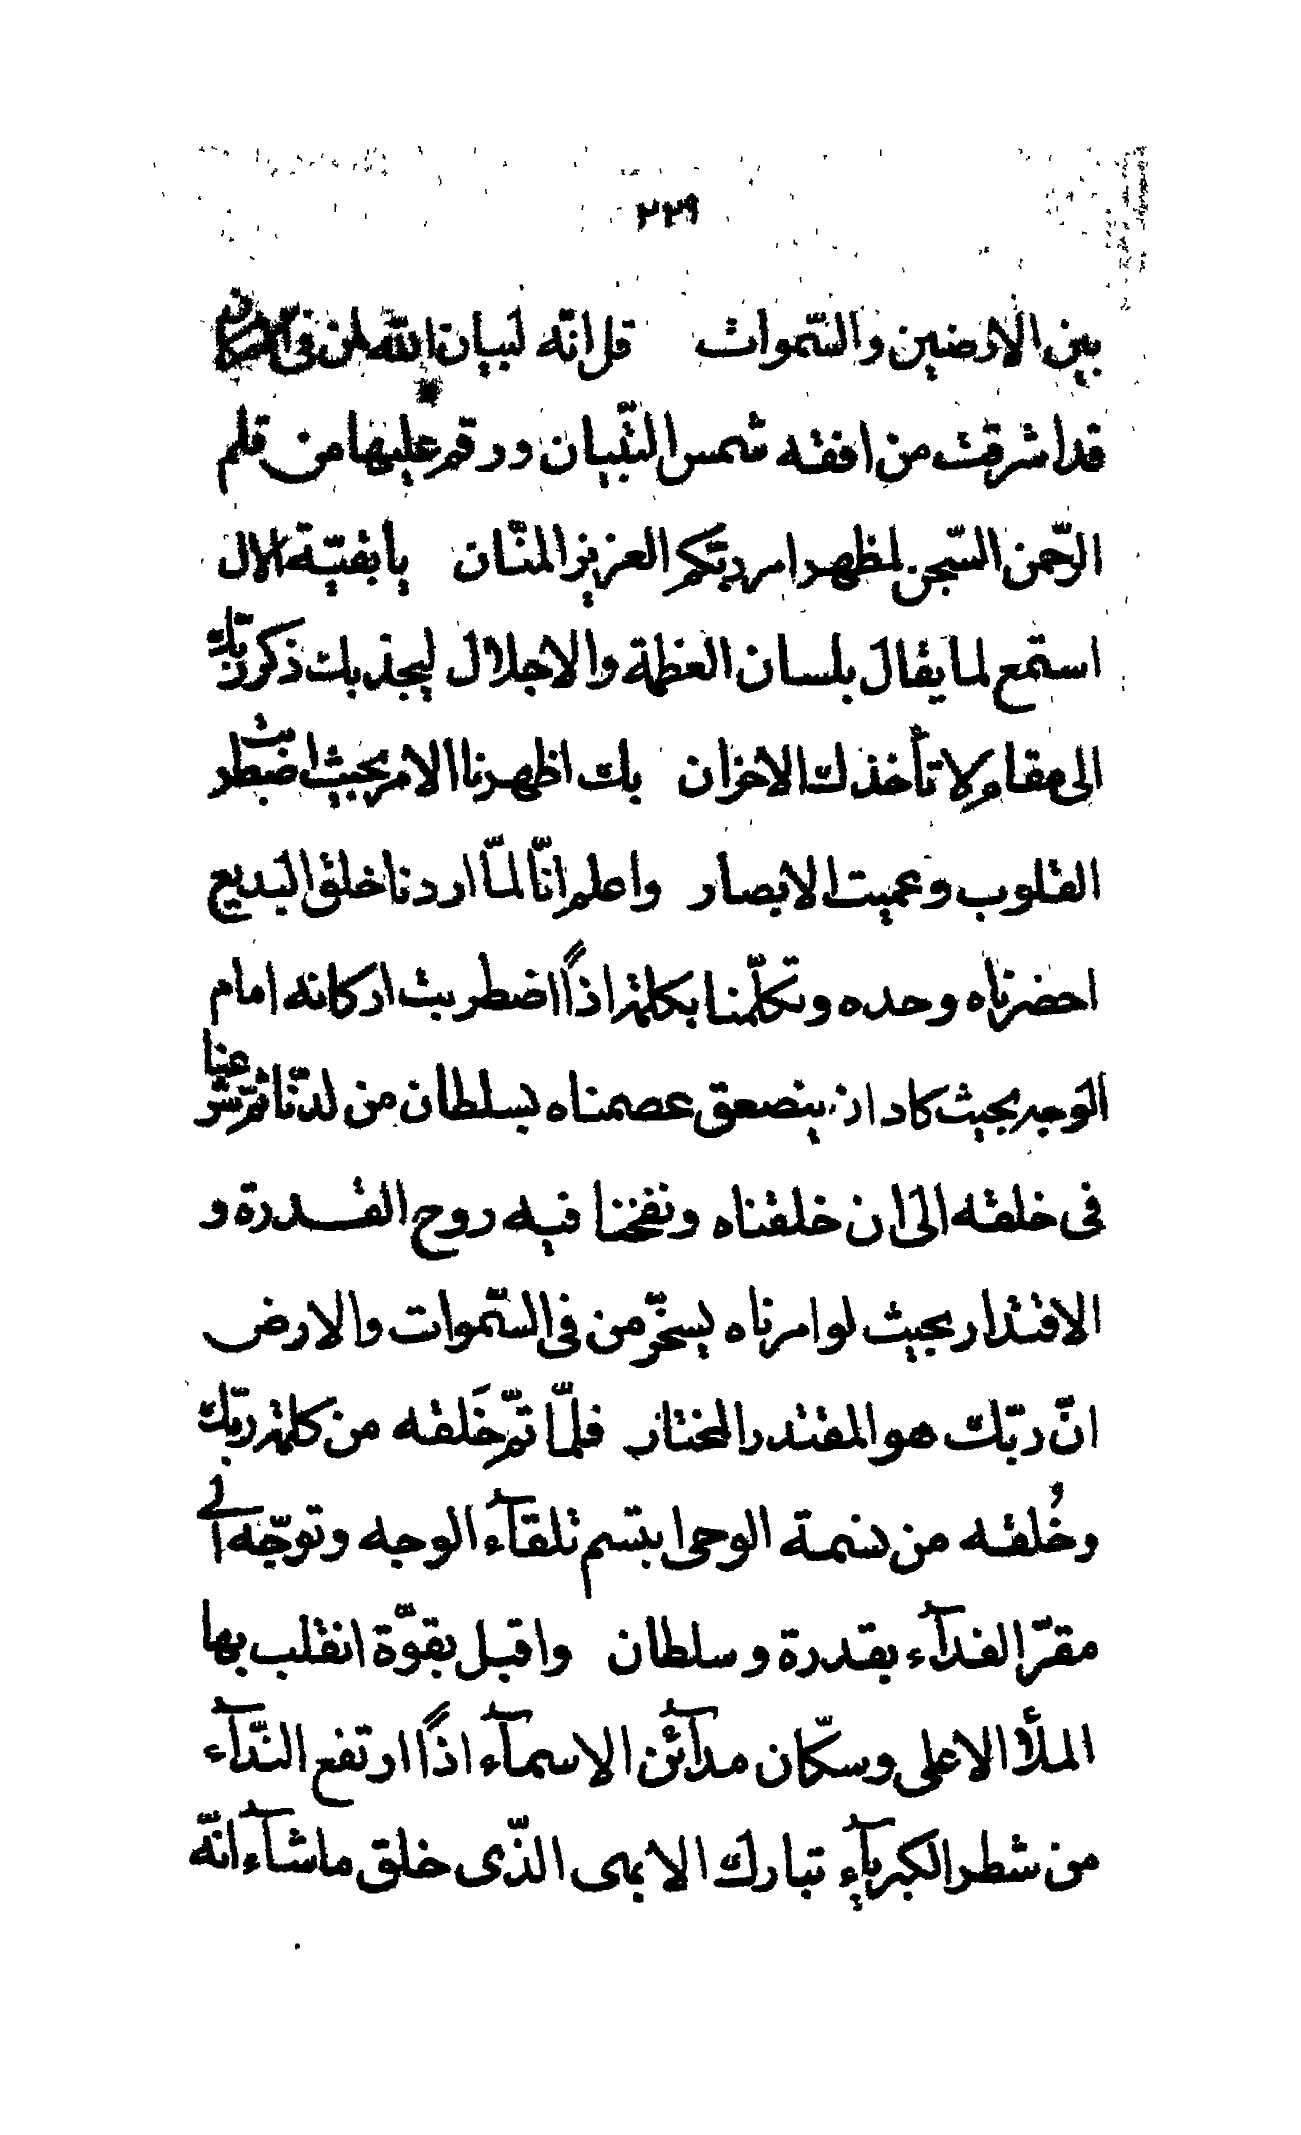 ٢٢٩
بين الارضين والسّموات قل انّه لبيان الله لمن فى الامكان
قد اشرقت من افقه شمس التّبيان ورقم عليها من قلم
الرّحمن السّجن لمظهر امر ربّكم العزيز المنّان يا بقيّة الال
استمع لما يقال بلسان العظمة والاجلال ليجذبك ذكر ربّك
الى مقام لا تأخذك الاحزان بك اظهرنا الامر بحيث اضطربت
القلوب وعميت الابصار واعلم انّا لمّا اردنا خلق البديع
احضرناه وحده وتكلّمنا بكلمة اذًا اضطربت اركانه امام
الوجه بحيث كاد ان ينصعق عصمناه بسلطان من لدنّا ثمّ شرعنا
فى خلقه الى ان خلقناه ونفخنا فيه روح القدرة و
الاقتدار بحيث لو امرناه يسخّر من فى السّموات والارض
انّ ربّك هو المقتدر المختار فلمّا تمّ خَلقه من كلمة ربّك
وخُلقه من نسمة الوحى ابتسم تلقآء الوجه وتوجّه الى
مقرّ الفدآء بقدرة وسلطان واقبل بقوّة انقلب بها
الملأ الاعلى وسكّان مدآئن الاسمآء اذًا ارتفع النّدآء
من شطر الكبريآء تبارك الابهى الّذى خلق ماشآء انّه